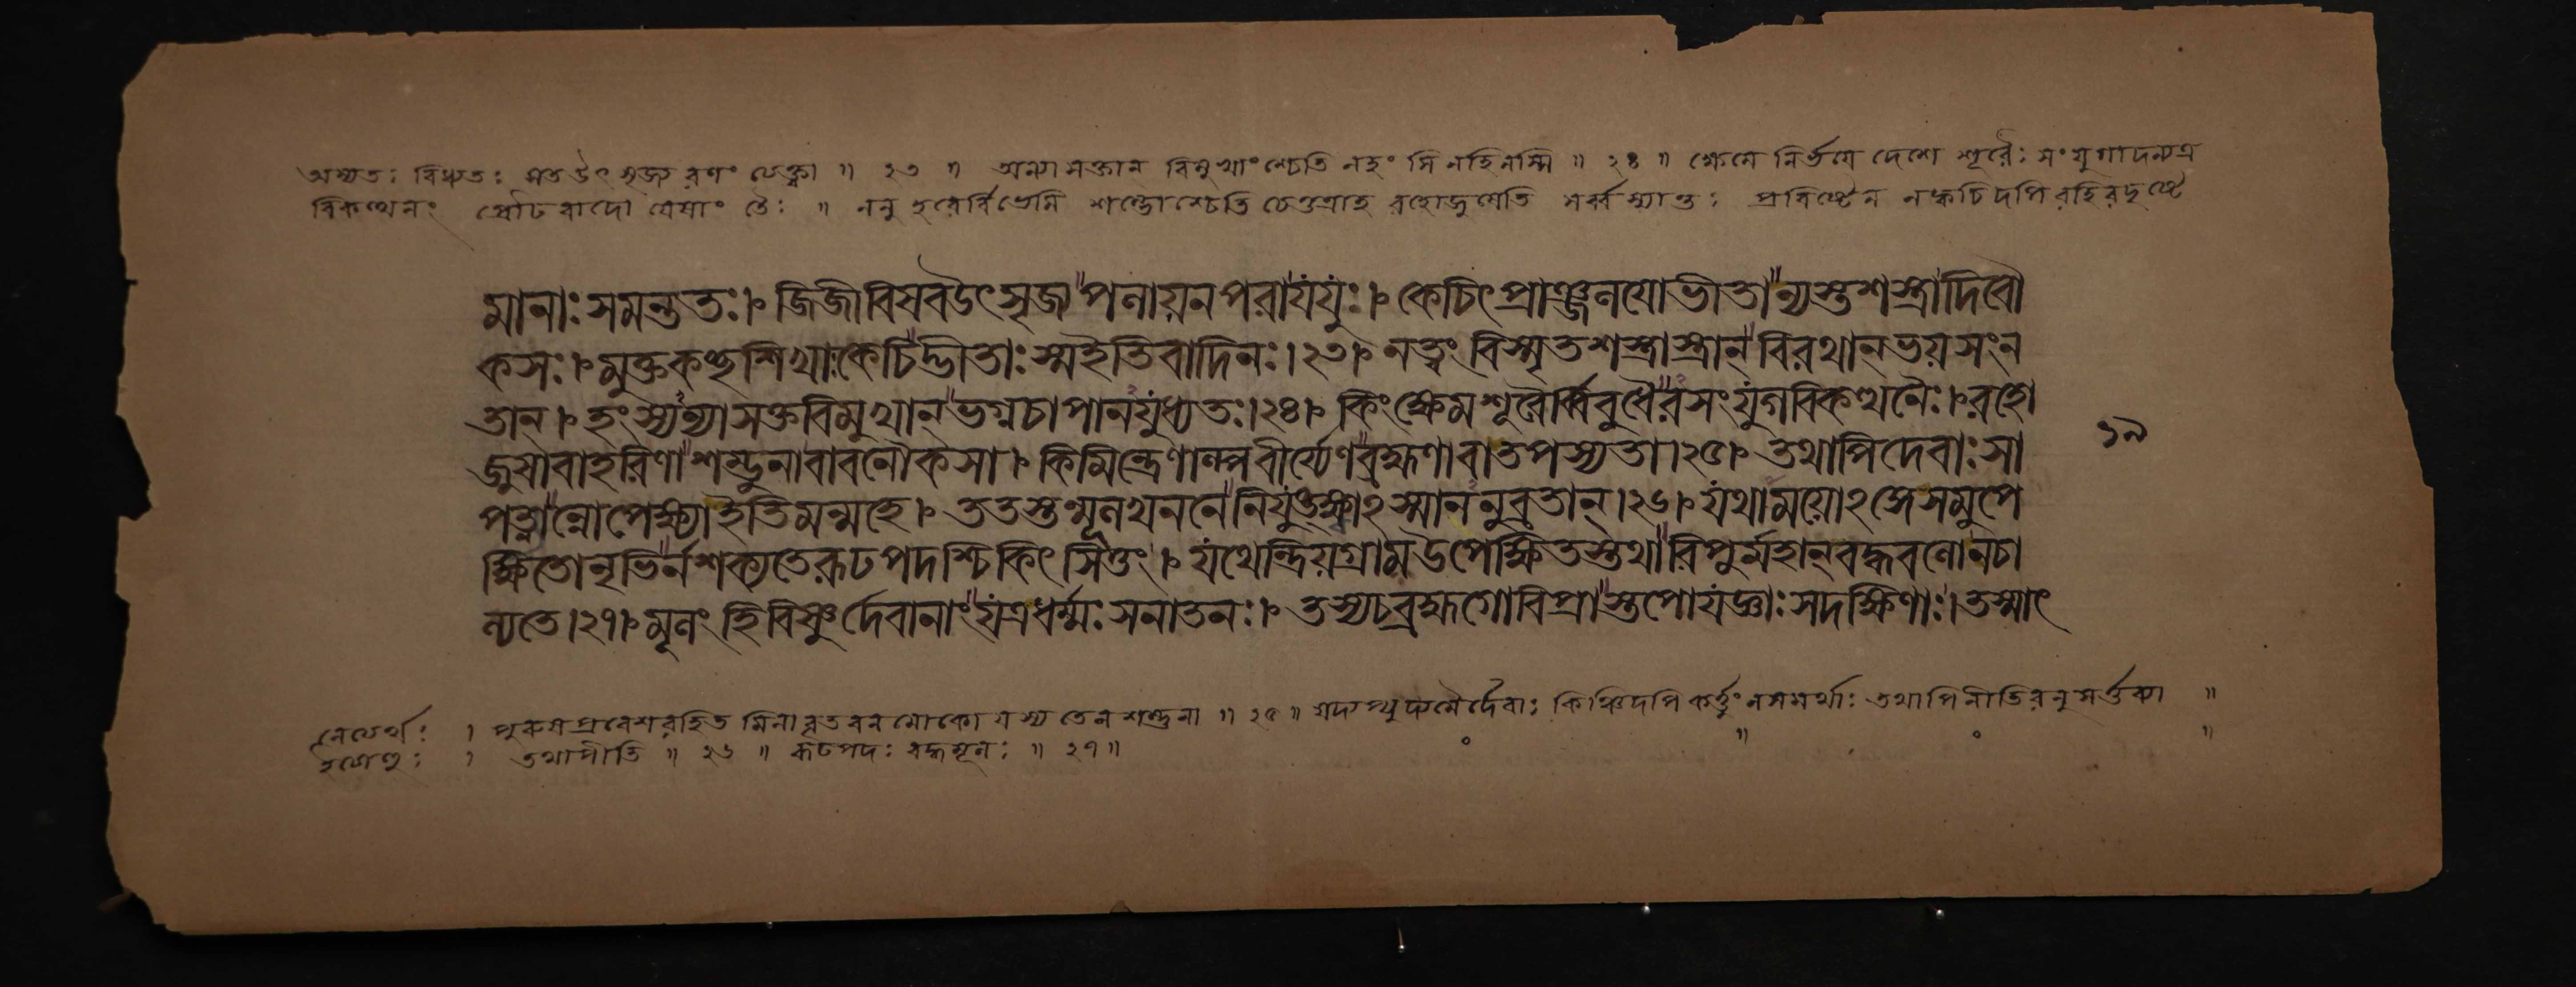 অস্যতঃ বিধ্যতঃ অত উৎসৃজ্য রণং ত্যেক্ত্বা ॥ ২৩ ॥ অন্যাসক্তান বিমুখাংশ্চেতি নহংসি নহিনস্মি ॥ ২৪ ॥ ক্ষেমে নির্ভয়ে দেশে শূরৈঃ সংযুগাদন্যত্র
বিকত্থনং প্রৌঢবাদো যেষাং তৈঃ ॥ ননু হরের্বিভেমি শম্ভোশ্চেতি চেত্তত্রাহ রহোজুষেতি সর্ব্বস্যান্তঃ প্রবিষ্টেন নক্বচিদপি বহিরদৃষ্টে
মানাঃ সমন্ততঃ।৮ জিজীবিষব উৎসৃজ্য পলায়নপরা যযুঃ।৮ কেচিৎপ্রাঞ্জলযো ভীতা ন্যস্তশস্ত্রা দিবৌ
কসঃ।৮ মুক্তকচ্ছশিখাঃ কেচিদ্ভীতাঃ স্ম ইতিবাদিনঃ।২৩।৮ নত্বং বিস্মৃতশস্ত্রাস্ত্রান্ বিরথান্ ভয়সংবৃ
তান্।৮ হংস্যন্যাসক্তবিমুখান্ ভগ্নচাপানযুধ্যতঃ।২৪।৮ কিং ক্ষেমশূরৈর্ব্বিবুধৈরসংযুগবিকত্থনৈঃ।৮ রহো
জুষা বা হরিণা শম্ভুনা বা বনৌকসা।৮ কিমিন্দ্রেণাল্পবীর্য্যেণ ব্রহ্মণা বা তপস্যতা।২৫।৮ তথাপি দেবাঃ সা
পত্ন্যান্নোপেক্ষ্যা ইতি মন্মহে।৮ ততস্তন্মূলখননে নিযুংক্ষ্বাঽস্মাননুব্রতান্।২৬।৮ যথাময়োঽঙ্গে সমুপে
ক্ষিতো নৃভির্ন শক্যতে রূঢপদশ্চিকিৎসিতুং।৮ যথেন্দ্রিয়গ্রাম উপেক্ষিতস্তথা রিপুর্মহান্ বদ্ধবলো ন চা
ল্যতে।২৭।৮ মূলং হি বিষ্ণুর্দেবানাং যত্র ধর্ম্মঃ সনাতনঃ।৮ তস্য চ ব্রহ্মগোবিপ্রাস্তপো যজ্ঞাঃ সদক্ষিণাঃ। তস্মাৎ
১৯
নেত্যর্থঃ । পুরুষপ্রবেশরহিতমিলাবৃতবনমোকো যস্য তেন শম্ভুনা ॥ ২৫ ॥ যদ্যপ্যুদ্যমৈর্দেবাঃ কিঞ্চিদপি কর্ত্তুং ন সমর্থাঃ তথাপি নীতিরনুসর্ত্তব্যা ॥
। তথাপীতি ॥ ২৬ ॥ রূঢপদঃ বদ্ধমূলঃ ॥ ২৭ ॥